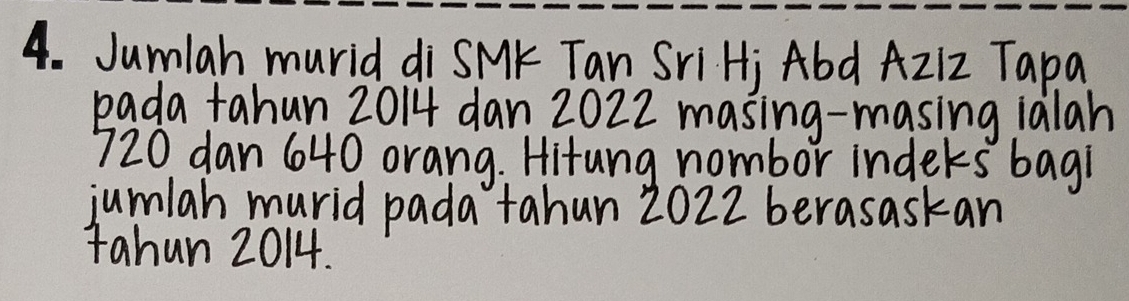 4. Jumlah murid di SMK Tan Sri Hj Abd Aziz Tapa
pada tahun 2014 dan 2022 masing-masing ialah
720 dan 640 orang. Hitung nombor indeks bagi
jumlah murid pada tahun 2022 berasaskan
tahun 2014.